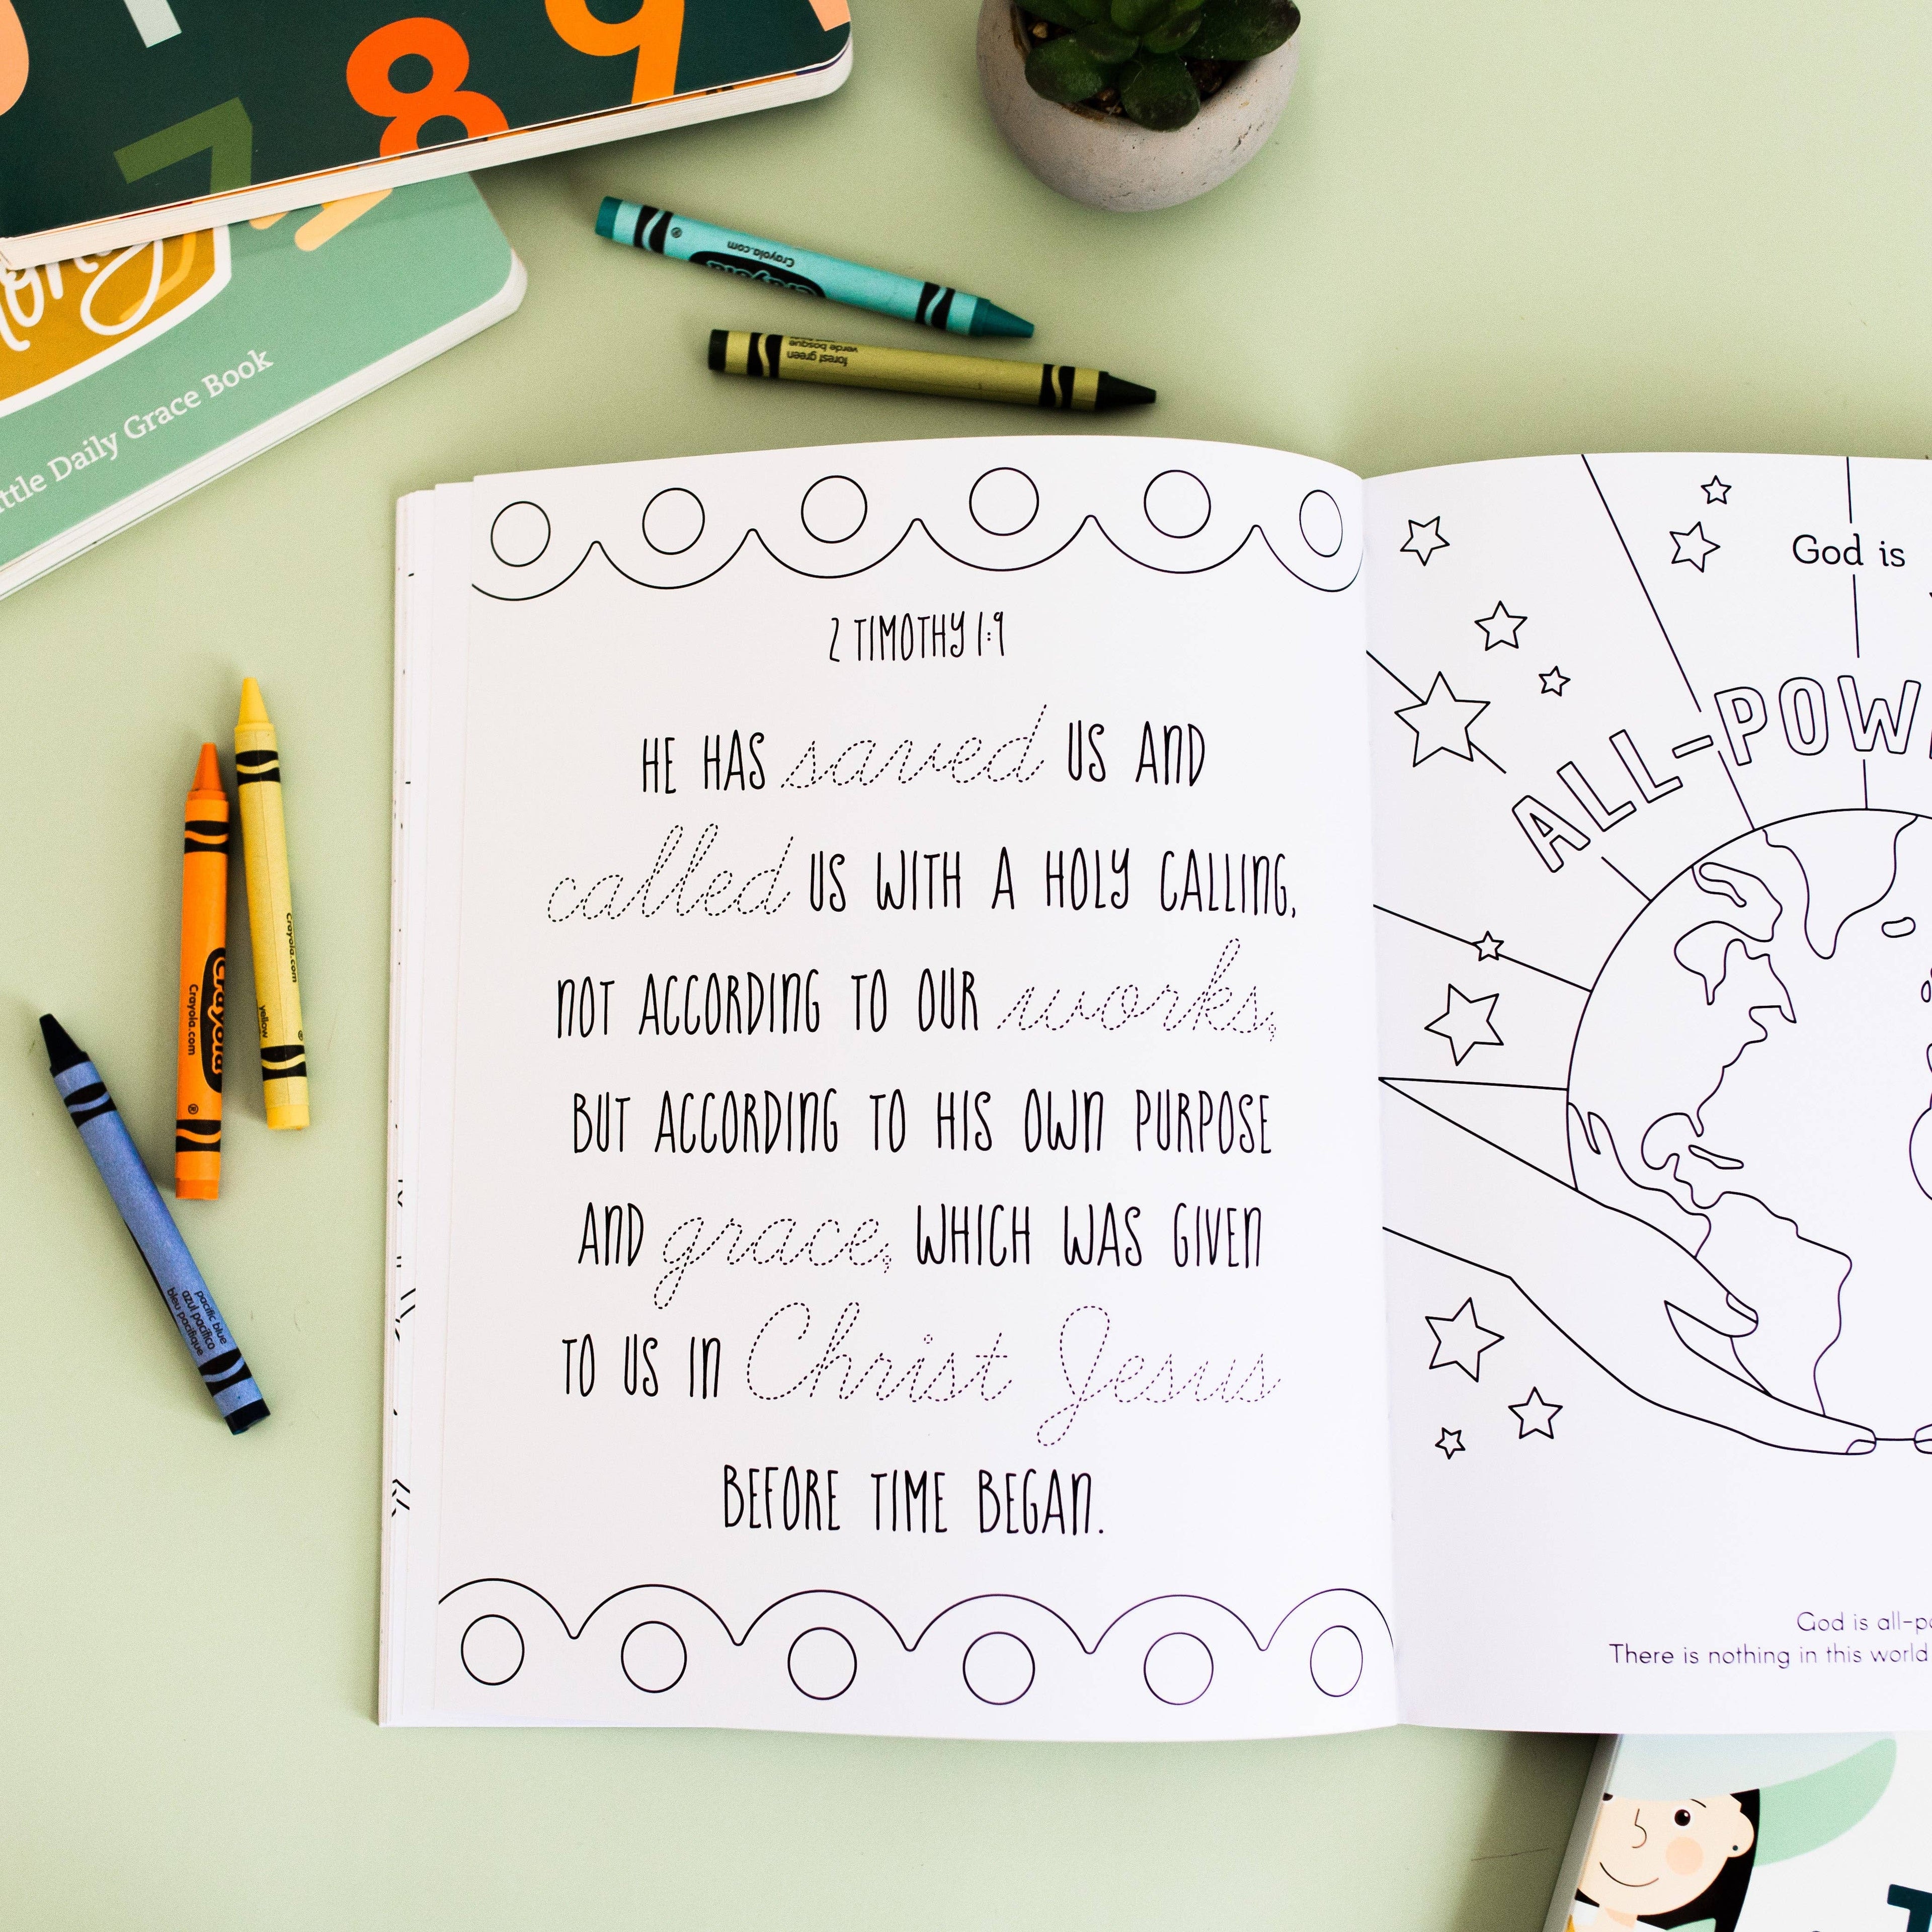 7 8 9
Daily Grace Book
Crayola.com
Crayola
forest green
2 TIMOTHY 1:9
HE HAS saved US AND
called US WITH A HOLY CALLING,
NOT ACCORDING TO OUR works,
BUT ACCORDING TO HIS OWN PURPOSE
AND grace, WHICH WAS GIVEN
TO US IN Christ Jesus
BEFORE TIME BEGAN.
God is
God is
There is nothing in this world
Crayola
Crayola.com
Crayola.com
yellow
pacific blue
azul pacífico
bleu pacifique